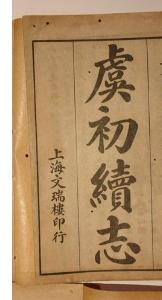 虞初續志
上海文瑞樓印行